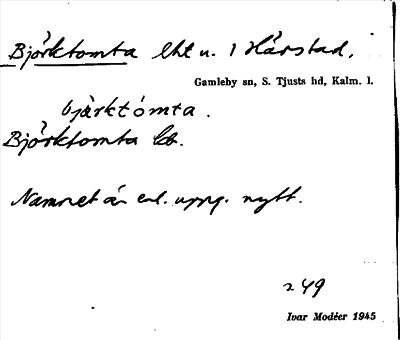 Björktomta lht u. 1 Hårstad,
Gamleby sn, S. Tjusts hd, Kalm. l.
bjärktómta.
Björktomta Eb.
Namnet är enl. uppg. nytt.
249
Ivar Modéer 1945